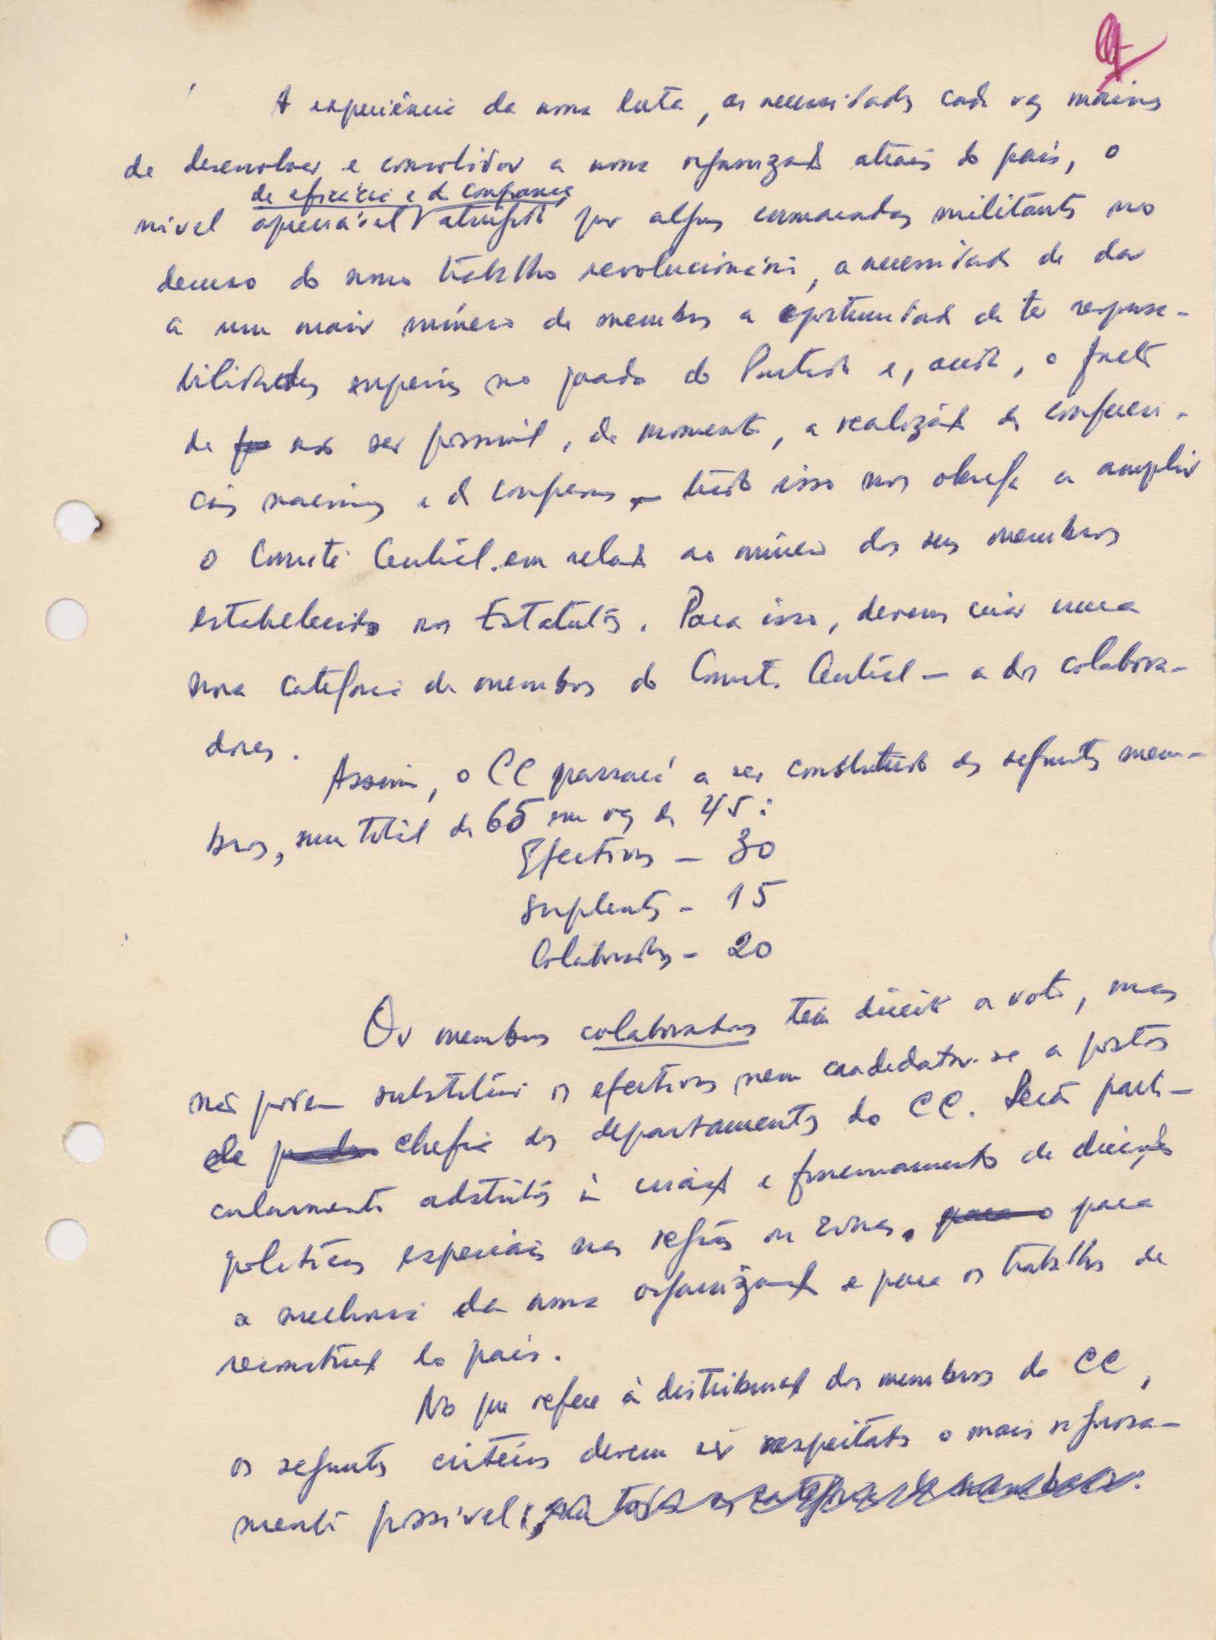 A experiência da nossa luta, as necessidades cada vez maiores
de desenvolver e consolidar a nossa organização através do país, o
de eficácia e de confiança
nível apreciável atingido por alguns camaradas militantes no
decurso do nosso trabalho revolucionário, a necessidade de dar
a um maior número de membros a oportunidade de ter responsa-
bilidades superiores no quadro do Partido e, ainda, o facto
de não ser possível, de momento, a realização de conferên-
cias e de congressos — tudo isso nos obriga a ampliar
o Comité Central em relação ao número dos seus membros
estabelecido nos Estatutos. Para isso, devemos criar uma
nova categoria de membros do Comité Central — a dos colabora-
dores.
Assim, o CC passará a ser constituído dos seguintes mem-
bros, num total de 65 em vez de 45:
Efectivos — 30
Suplentes — 15
Colaboradores — 20
Os membros colaboradores têm direito a voto, mas
não podem substituir os efectivos nem candidatar-se a postos
de chefia dos departamentos do CC. Serão parti-
cularmente adstritos à criação e funcionamento de direcções
políticas especiais nas regiões ou zonas, para
a melhoria da nossa organização e para os trabalhos de
reconstrução do país.
No que refere à distribuição dos membros do CC,
os seguintes critérios devem ser respeitados o mais rigorosa-
mente possível: